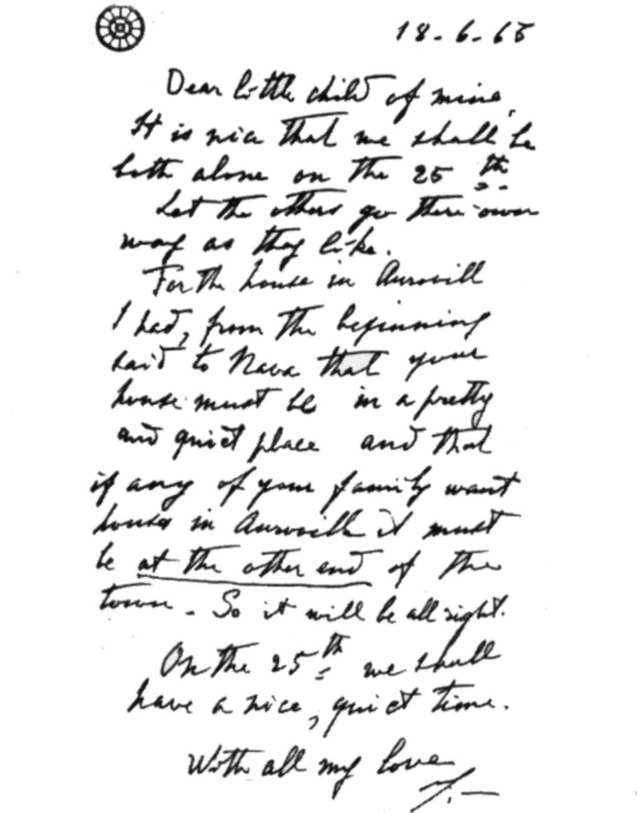 18-6-65
Dear little child of mine,
It is nice that we shall be
both alone on the 25th
Let the others go their own
way as they like.
For the house in Auroville
I had, from the beginning
said to Nava that your
house must be in a pretty
and quiet place and that
if any of your family want
houses in Auroville it must
be at the other end of the
town - So it will be all right.
On the 25th we shall
have a nice, quiet time.
With all my love